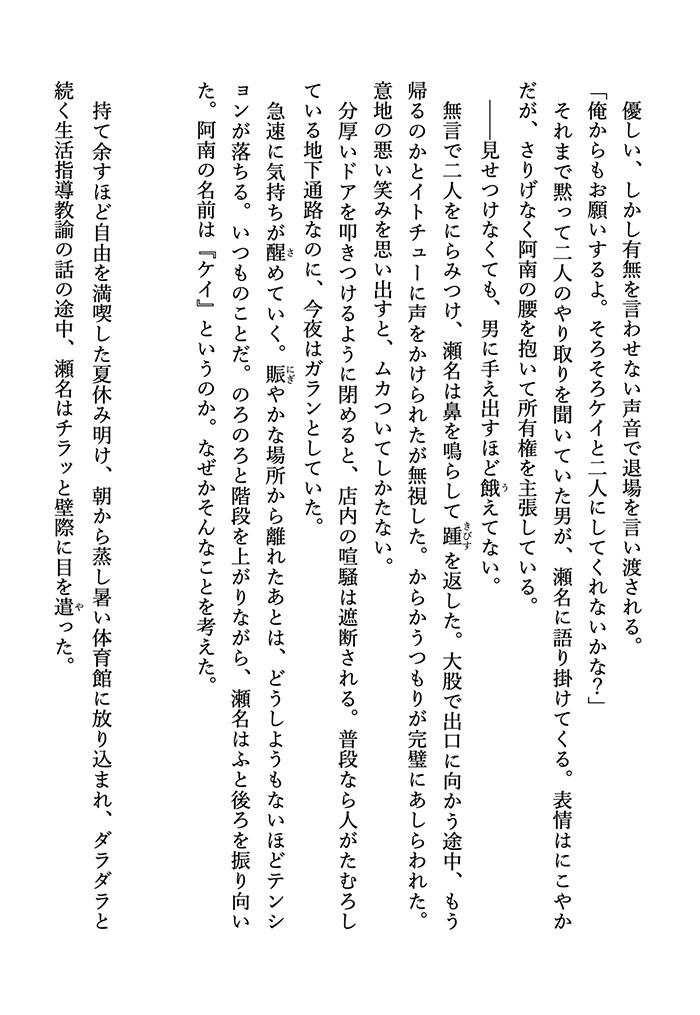 優しい、しかし有無を言わせない声音で退場を言い渡される。
「俺からもお願いするよ。そろそろケイと二人にしてくれないかな？」
それまで黙って二人のやり取りを聞いていた男が、瀬名に語り掛けてくる。表情はにこやか
だが、さりげなく阿南の腰を抱いて所有権を主張している。
――見せつけなくても、男に手え出すほど餓えてない。
無言で二人をにらみつけ、瀬名は鼻を鳴らして踵を返した。大股で出口に向かう途中、もう
帰るのかとイトチューに声をかけられたが無視した。からかうつもりが完璧にあしらわれた。
意地の悪い笑みを思い出すと、ムカついてしかたない。
分厚いドアを叩きつけるように閉めると、店内の喧騒は遮断される。普段なら人がたむろし
ている地下通路なのに、今夜はガランとしていた。
急速に気持ちが醒めていく。賑やかな場所から離れたあとは、どうしようもないほどテンシ
ョンが落ちる。いつものことだ。のろのろと階段を上がりながら、瀬名はふと後ろを振り向い
た。阿南の名前は『ケイ』というのか。なぜかそんなことを考えた。
持て余すほど自由を満喫した夏休み明け、朝から蒸し暑い体育館に放り込まれ、ダラダラと
続く生活指導教諭の話の途中、瀬名はチラッと壁際に目を遣った。